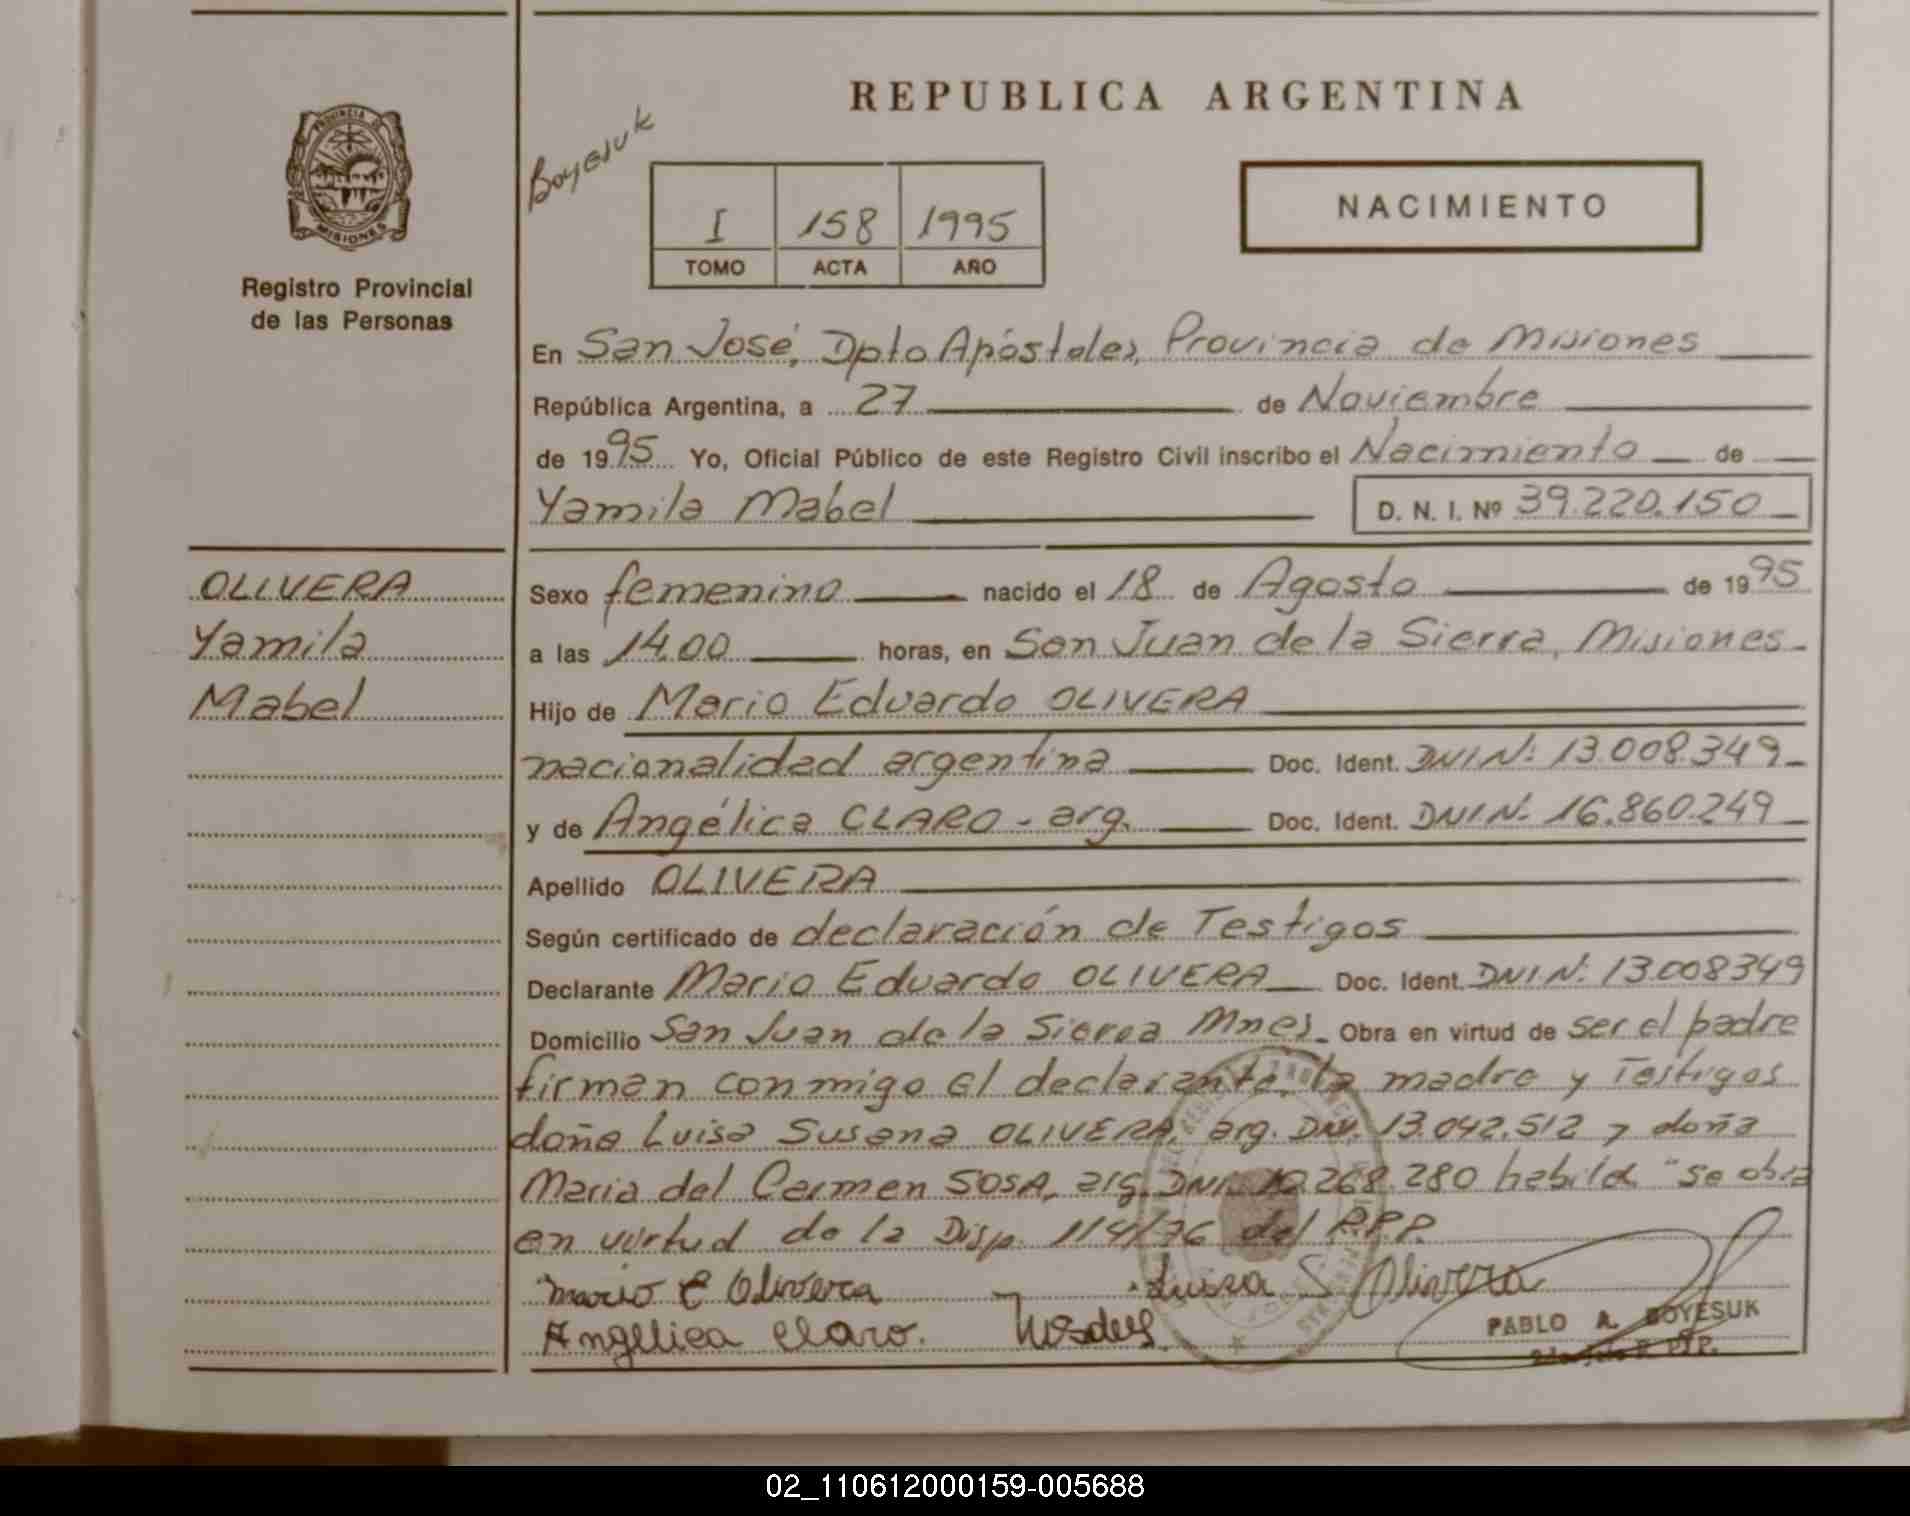 REPUBLICA ARGENTINA
Boyesuk
PROVINCIA DE
MISIONES
Registro Provincial
de las Personas
I 158 1995
TOMO ACTA AÑO
NACIMIENTO
En San José, Dpto Apóstoles, Provincia de Misiones
República Argentina, a 27 de Noviembre
de 1995 Yo, Oficial Público de este Registro Civil inscribo el Nacimiento de
Yamila Mabel D. N. I. Nº 39.220.150
OLIVERA
Yamila
Mabel
Sexo femenino nacido el 18 de Agosto de 1995
a las 14.00 horas, en San Juan de la Sierra, Misiones.
Hijo de Mario Eduardo OLIVERA
nacionalidad argentina Doc. Ident. DNI N: 13.008.349
y de Angélica CLARO - arg. Doc. Ident. DNI N: 16.860.249
Apellido OLIVERA
Según certificado de declaración de Testigos
Declarante Mario Eduardo OLIVERA Doc. Ident. DNI N: 13.008349
Domicilio San Juan de la Sierra Mnes. Obra en virtud de ser el padre
firman conmigo el declarante, la madre y Testigos
doña Luisa Susana OLIVERA, arg. DNI. 13.042.512 y doña
Maria del Carmen SOSA, arg. DNI. 10.268.280 "Se obra
en virtud de la Disp. 114/76 del R.P.P.
Mario E Olivera Luisa S Olivera
Angelica Claro.
PABLO A. BOYESUK
02_110612000159-005688